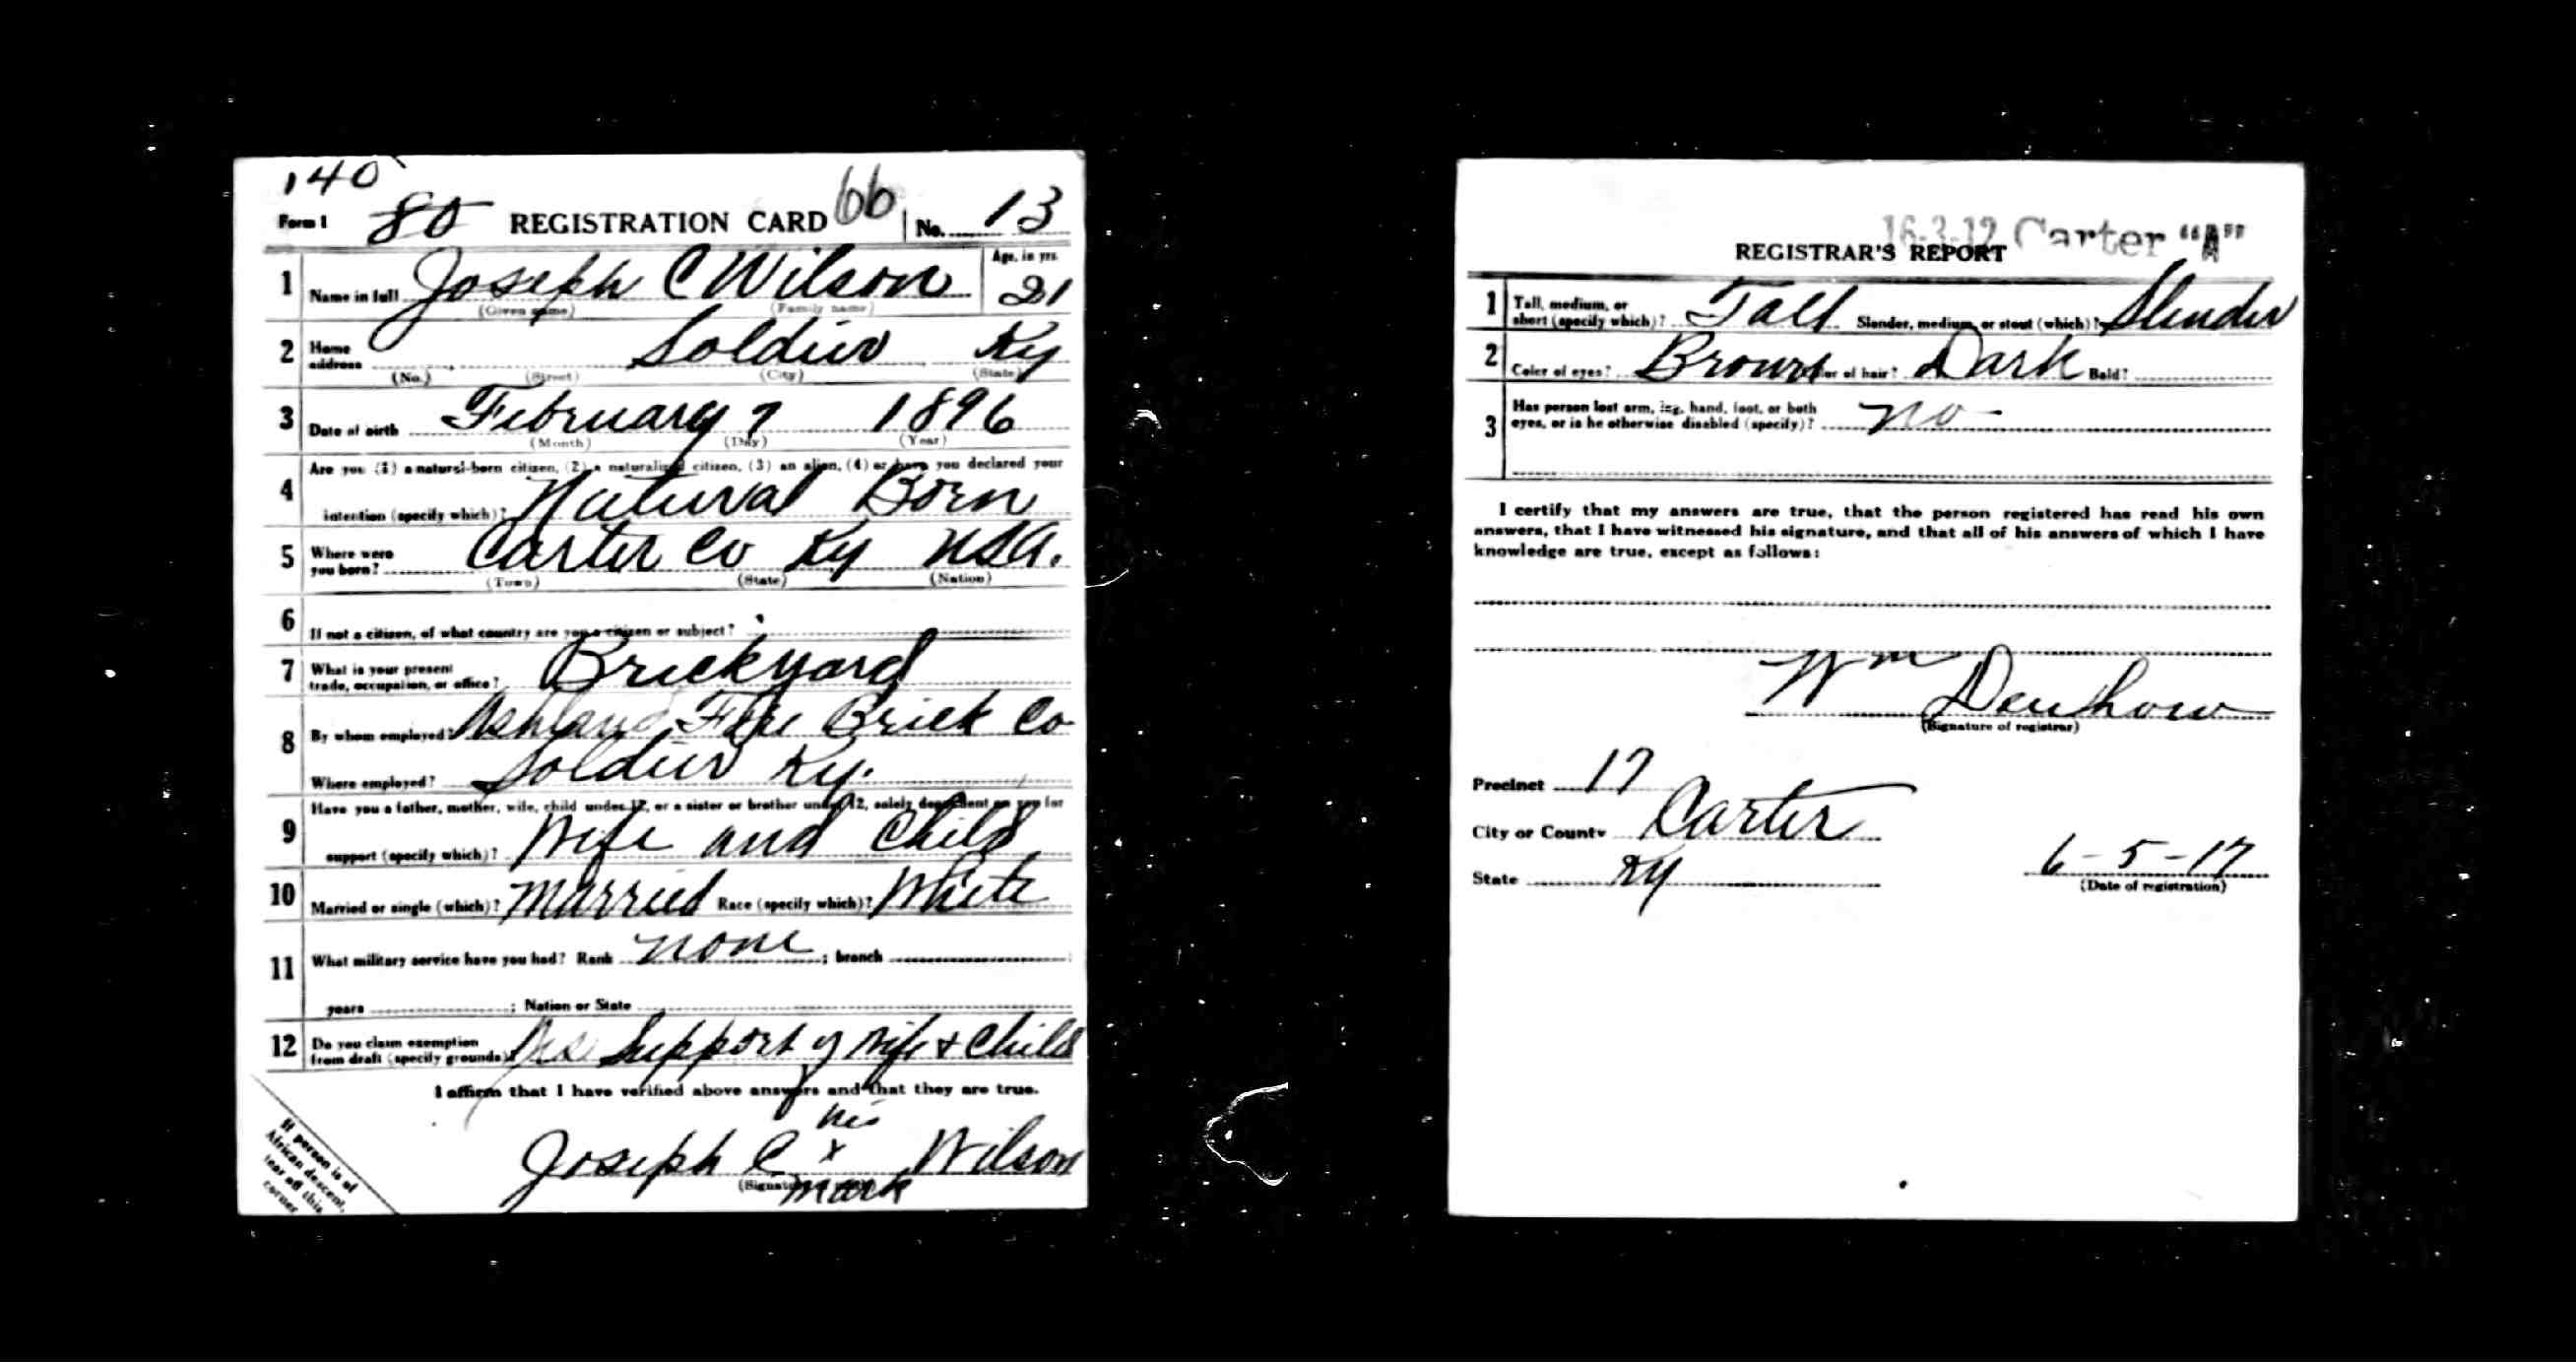 140
Form 1 80 REGISTRATION CARD 66 No. 13
1 Name in full Joseph C Wilson Age, in yrs. 21
(Given name) (Family name)
2 Home address Soldier Ky
(No.) (Street) (City) (State)
3 Date of birth February 7 1896
(Month) (Day) (Year)
4 Are you (1) a natural-born citizen, (2) a naturalized citizen, (3) an alien, (4) or have you declared your
intention (specify which)? Natural Born
5 Where were you born? Carter Co Ky USA.
(Town) (State) (Nation)
6 If not a citizen, of what country are you a citizen or subject?
7 What is your present trade, occupation, or office? Brickyard
8 By whom employed? Ashland Fire Brick Co
Where employed? Soldier Ky.
9 Have you a father, mother, wife, child under 12, or a sister or brother under 12, solely dependent on you for
support (specify which)? Wife and Child
10 Married or single (which)? Married Race (specify which)? White
11 What military service have you had? Rank none ; branch
years ; Nation or State
12 Do you claim exemption from draft (specify grounds)? Yes Support of Wife & Child
I affirm that I have verified above answers and that they are true.
his
Joseph C x Wilson
(Signature mark
If person is of
African descent,
tear off this
corner
16-3-12 Carter "A"
REGISTRAR'S REPORT
1 Tall, medium, or short (specify which)? Tall Slender, medium, or stout (which)? Slender
2 Color of eyes? Brown Color of hair? Dark Bald?
3 Has person lost arm, leg, hand, foot, or both
eyes, or is he otherwise disabled (specify)? no
I certify that my answers are true, that the person registered has read his own
answers, that I have witnessed his signature, and that all of his answers of which I have
knowledge are true, except as follows:
Wm
(Signature of registrar)
Precinct 17
City or County Carter
State Ky 6-5-17
(Date of registration)